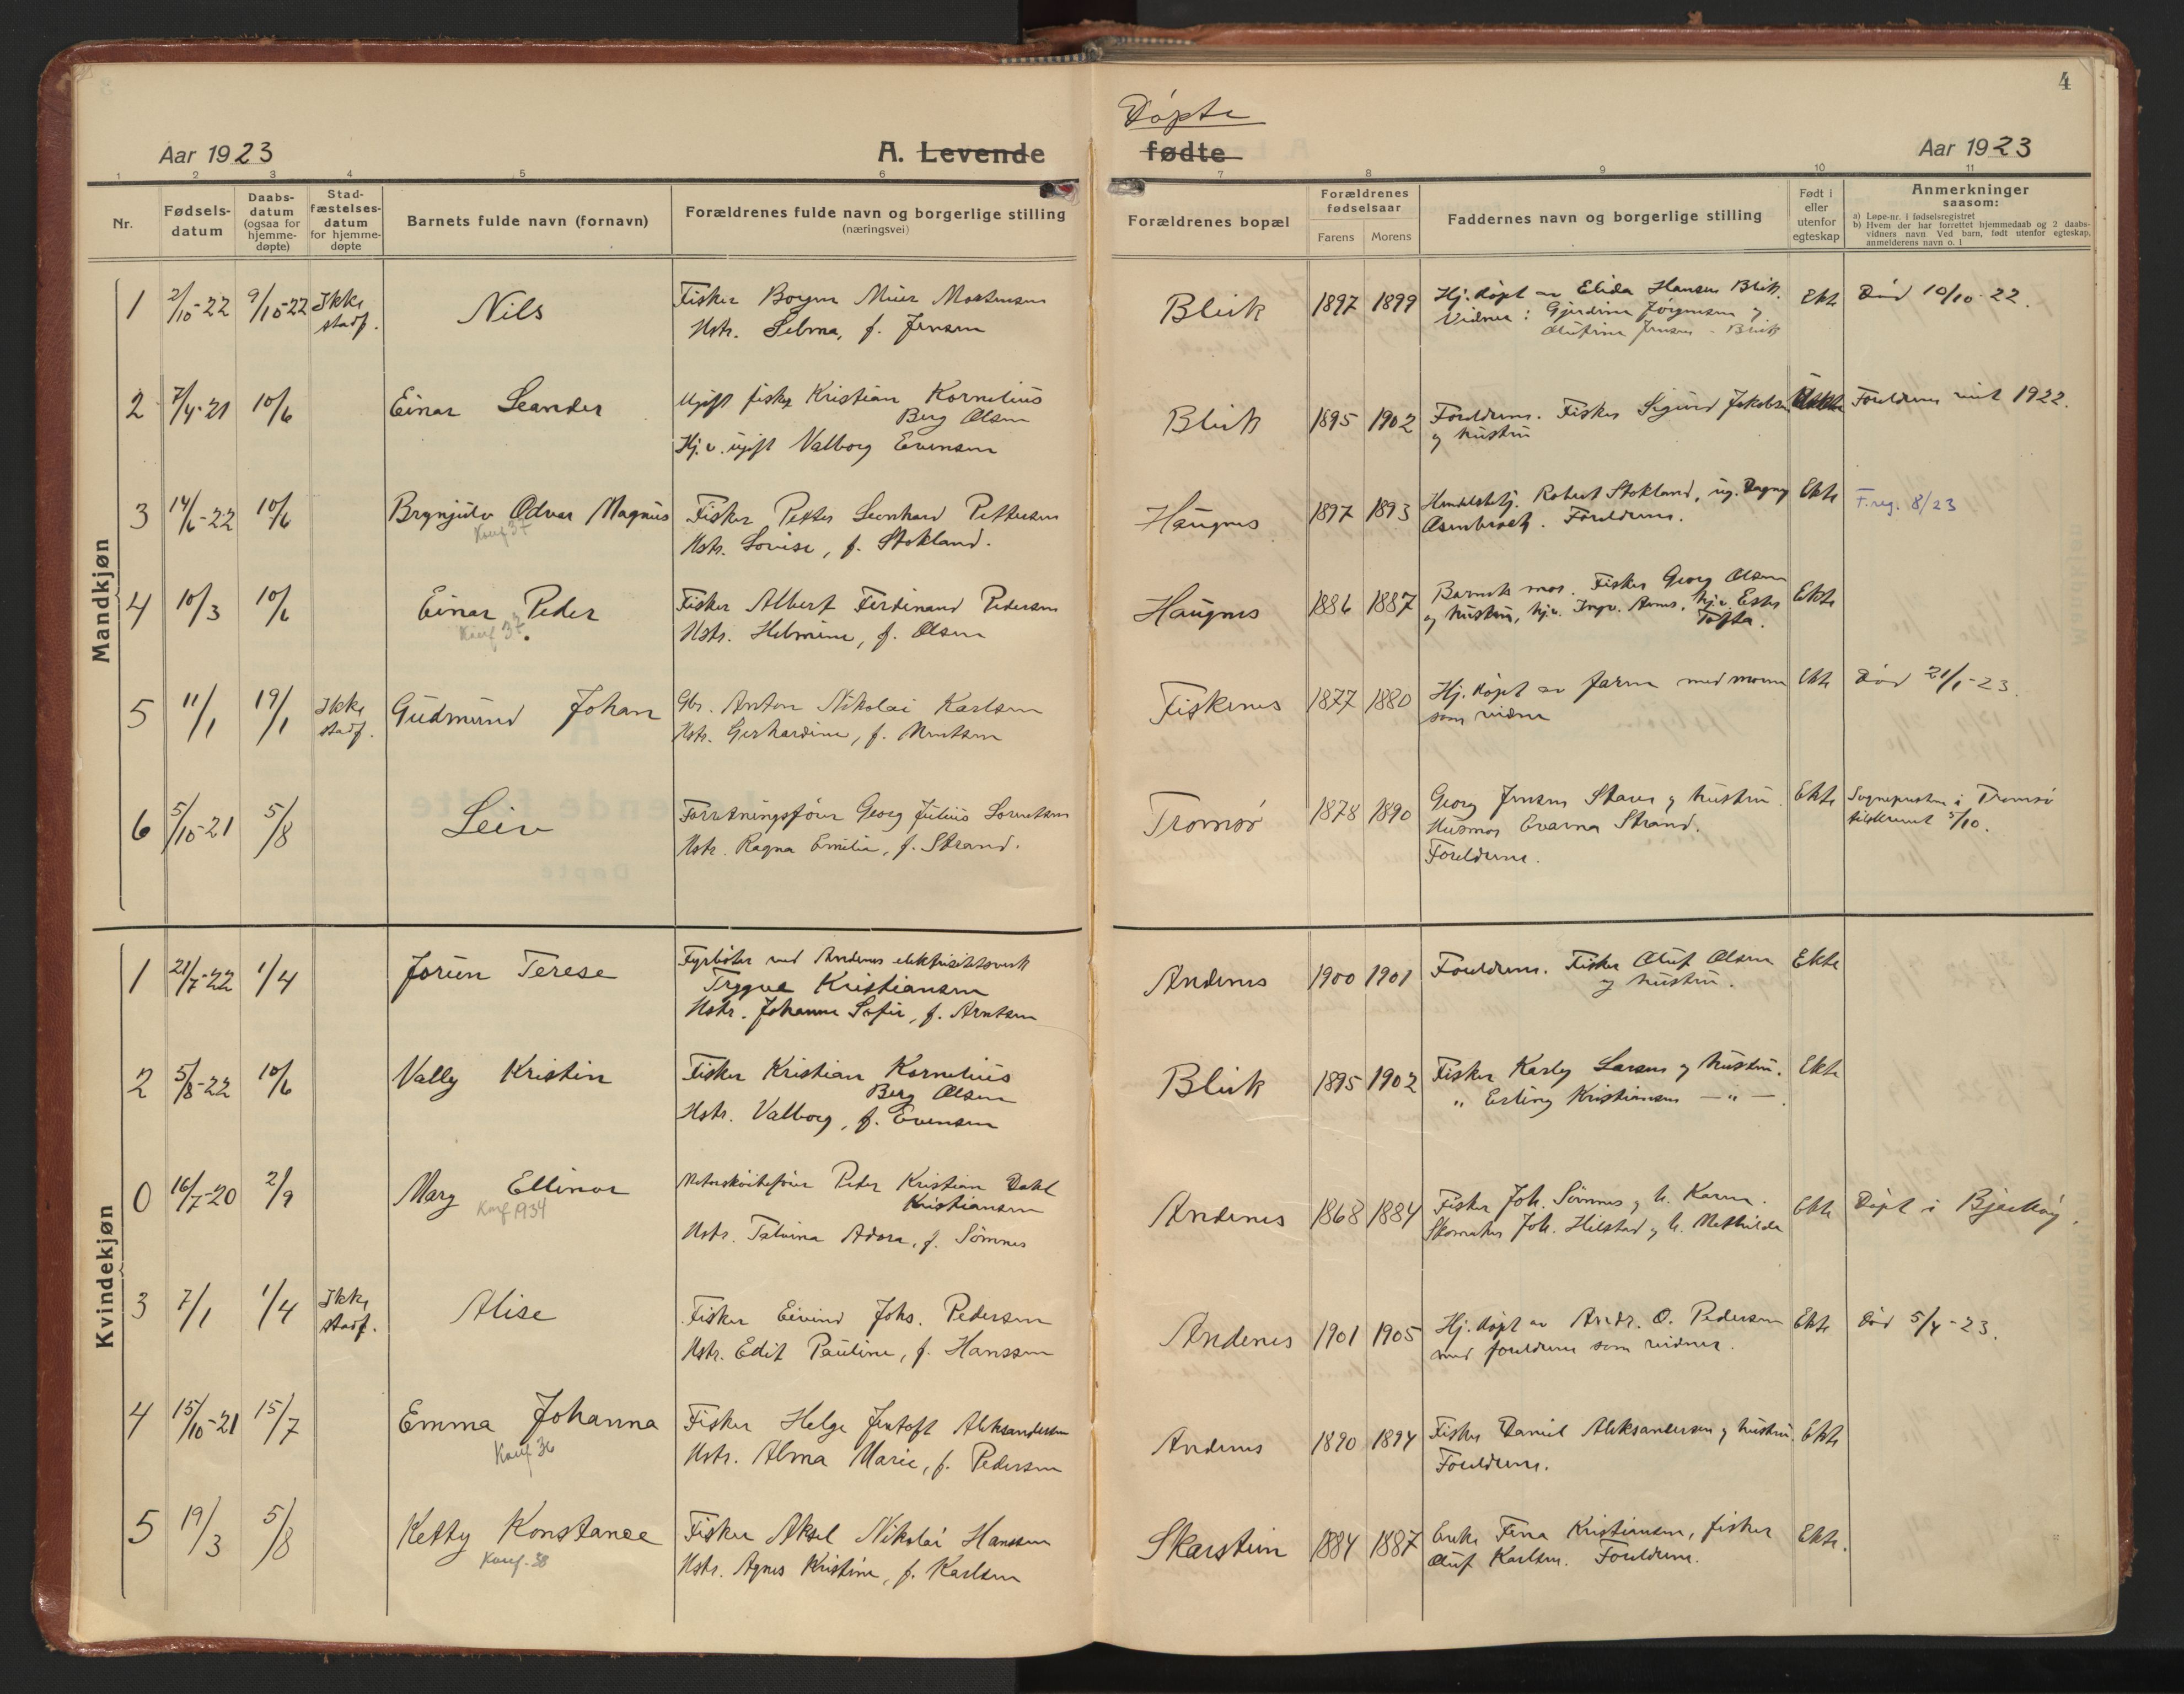 4
Døpte
Aar 1923
A. Levende
fødte
Aar 1923
1 2 3 4 5 6 7 8 9 10 11
Nr.
Fødsels-
datum
Daabs-
datum
(ogsaa for
hjemme-
døpte)
Stad-
fæstelses-
datum
for hjemme-
døpte
Barnets fulde navn (fornavn)
Forældrenes fulde navn og borgerlige stilling
(næringsvei)
Forældrenes bopæl
Forældrenes
fødselsaar
Farens Morens
Faddernes navn og borgerlige stilling
Født i
eller
utenfor
egteskap
Anmerkninger
saasom:
a) Løpe-nr. i fødselsregistret
b) Hvem der har forrettet hjemmedaab og 2 daabs-
vidners navn Ved barn, født utenfor egteskap,
anmelderens navn o. l
Mandkjøn
1 2/10-22 9/10-22 Ikke
stadf.
Nils
Fisker Meier Mortensen
Hstr. Selma, f. Jensen
Bleik 1897 1899
Hj. døpt av Elida Hansen Bleik.
Vidner: Gjerdine Jørgensen og
Olufine Jensen - Bleik
Ekte
Død 10/10-22.
2 7/4-21 10/6
Einar Leander
Ugift fisker Kristian Kornelius
Berg Olsen
Hj.v. ugift Valborg Evensen
Bleik 1895 1902
Foreldrene. Fisker Sigurd Jakobsen
og hustru
Foreldrene viet 1922.
3 14/6-22 10/6
Brynjulv Odvar Magnus
Konf 37
Fisker Petter Leonhard Pettersen
Hstr. Lovise, f. Stokland.
Haugnes 1897 1893
Handelsbetj. Robert Stokland, ug. Dagny
Foreldrene.
Ekte
F.reg. 8/23
4 10/3 10/6
Einar Peder
Konf 37.
Fisker Albert Ferdinand Pedersen
Hstr. Helmine, f. Olsen
Haugnes 1886 1887
Barnets mor. Fisker Georg Olsen
og hustru, hj.v. Ingv. hj.v. Ester
Tofta.
Ekte
5 11/1 19/1 Ikke
stadf.
Gudmund Johan
Gbr. Anton Nikolai Karlsen
Hstr. Gerhardine, f. Arntsen
Fiskenes 1877 1880
Hj. døpt av faren med moren
som vidne
Ekte
Død 21/1-23.
6 5/10-21 5/8
Leiv
Forretningsfører Georg Julius Lorentsen
Hstr. Ragna Emilie, f. Strand.
Tromsø 1878 1890
Georg Jensen Skarer og hustru.
Husmor Evarna Strand.
Foreldrene.
Ekte
Sognepresten i Tromsø
tilskrevet 5/10.
Kvindekjøn
1 21/7-22 1/4
Jorun Terese
Fyrbøter ved Andenes elektrisitetsverk
Trygve Kristiansen
Hstr. Johanne Sofie, f. Arntsen
Andenes 1900 1901
Foreldrene. Fisker Oluf Olsen
og hustru.
Ekte
2 5/8-22 10/6
Vally Kristin
Fisker Kristian Kornelius
Berg Olsen
Hstr. Valborg, f. Evensen
Bleik 1895 1902
Fisker Karley Larsen og hustru.
" Erling Kristiansen — " —.
Ekte
0 16/7-20 2/9
Mary Ellinor
Konf 1934
Motorskøitefører Peder Kristian Dahl
Kristiansen
Hstr. Talvina Adora, f. Sømnes
Andenes 1868 1884
Fisker Joh. Sømnes og h. Karen.
Skomaker Joh. Hilstad og h. Methilde
Ekte
Døpt i Bjarkøy.
3 7/1 1/4 Ikke
stadf.
Alise
Fisker Eivind Johs. Pedersen
Hstr. Edit Pauline, f. Hanssen
Andenes 1901 1905
Hj. døpt av Andr. O. Pedersen
med foreldrene som vidner.
Ekte
Død 5/4-23.
4 15/10-21 15/7
Emma Johanna
Konf 36
Fisker Helge Jentoft Aleksandersen
Hstr. Alma Marie, f. Pedersen
Andenes 1890 1894
Fisker Daniel Aleksandersen og hustru.
Foreldrene.
Ekte
5 19/3 5/8
Ketty Konstance
Konf. 38
Fisker Aksel Nikolai Hanssen
Hstr. Agnes Kristine, f. Karlsen
Skarstein 1884 1887
Enke Fina Kristiansen, fisker
Oluf Karlsen. Foreldrene.
Ekte.